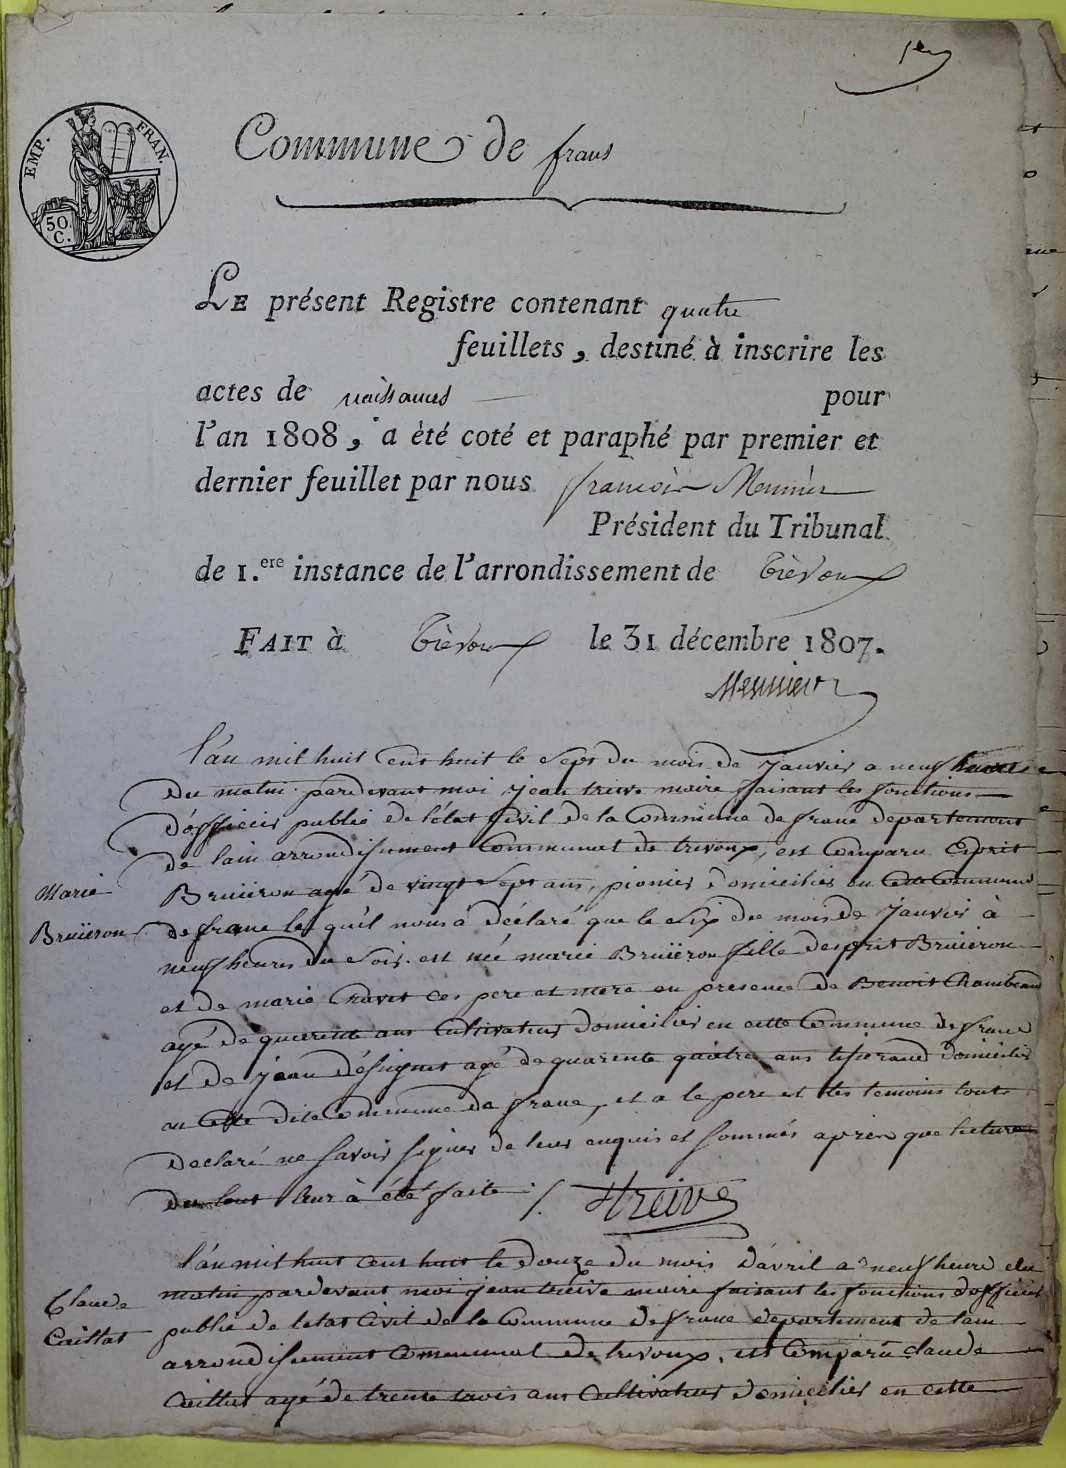 1er
EMP. FRAN.
50 C.
Commune de frans
Le présent Registre contenant quatre
feuillets, destiné à inscrire les
actes de naissances pour
l'an 1808, a été coté et paraphé par premier et
dernier feuillet par nous françois Meunier
Président du Tribunal
de 1.ere instance de l'arrondissement de Trévoux
Fait à Trévoux le 31 décembre 1807.
Meunier
l'an mil huit cent huit le sept du mois de janvier a neuf heures
du matin pardevant moi jean treive maire faisant les fonctions
d'officier public de létat Civil de la Commune de frans departement
de lain arrondissement Communal de trevoux, est Comparu Esprit
Marie
Bruiëron
Bruiëron agé de vingt sept ans, pionier domicilier en Cette Commune
de frans le quil nous à déclaré que le six du mois de janvier à
neuf heures du soir est née marie Bruiëron fille desprit Bruiëron
et de marie ces pere et mere en presence de Benoit Chambeaud
agé de quarente ans Cultivateur domicilier en cette Commune de frans
et de jean agé de quarente quatre ans tisserand domicilier
en Cette dite Commune de frans, et a le pere et les temoins touts
declaré ne savoir signer de leur enquis et sommés aprèn que lecture
du tout leur à été faite ./. treive
l'an mil huit cent huit le douze du mois d'avril a neuf heure du
matin pardevant moi jean treive maire faisant les fonctions d'officier
Claude
Caillat
public de letat Civil de la Commune de frans departement de lain
arrondissement Communal de trevoux, est Comparu claude
Caillat agé de trente trois ans Cultivateur domicilier en cette